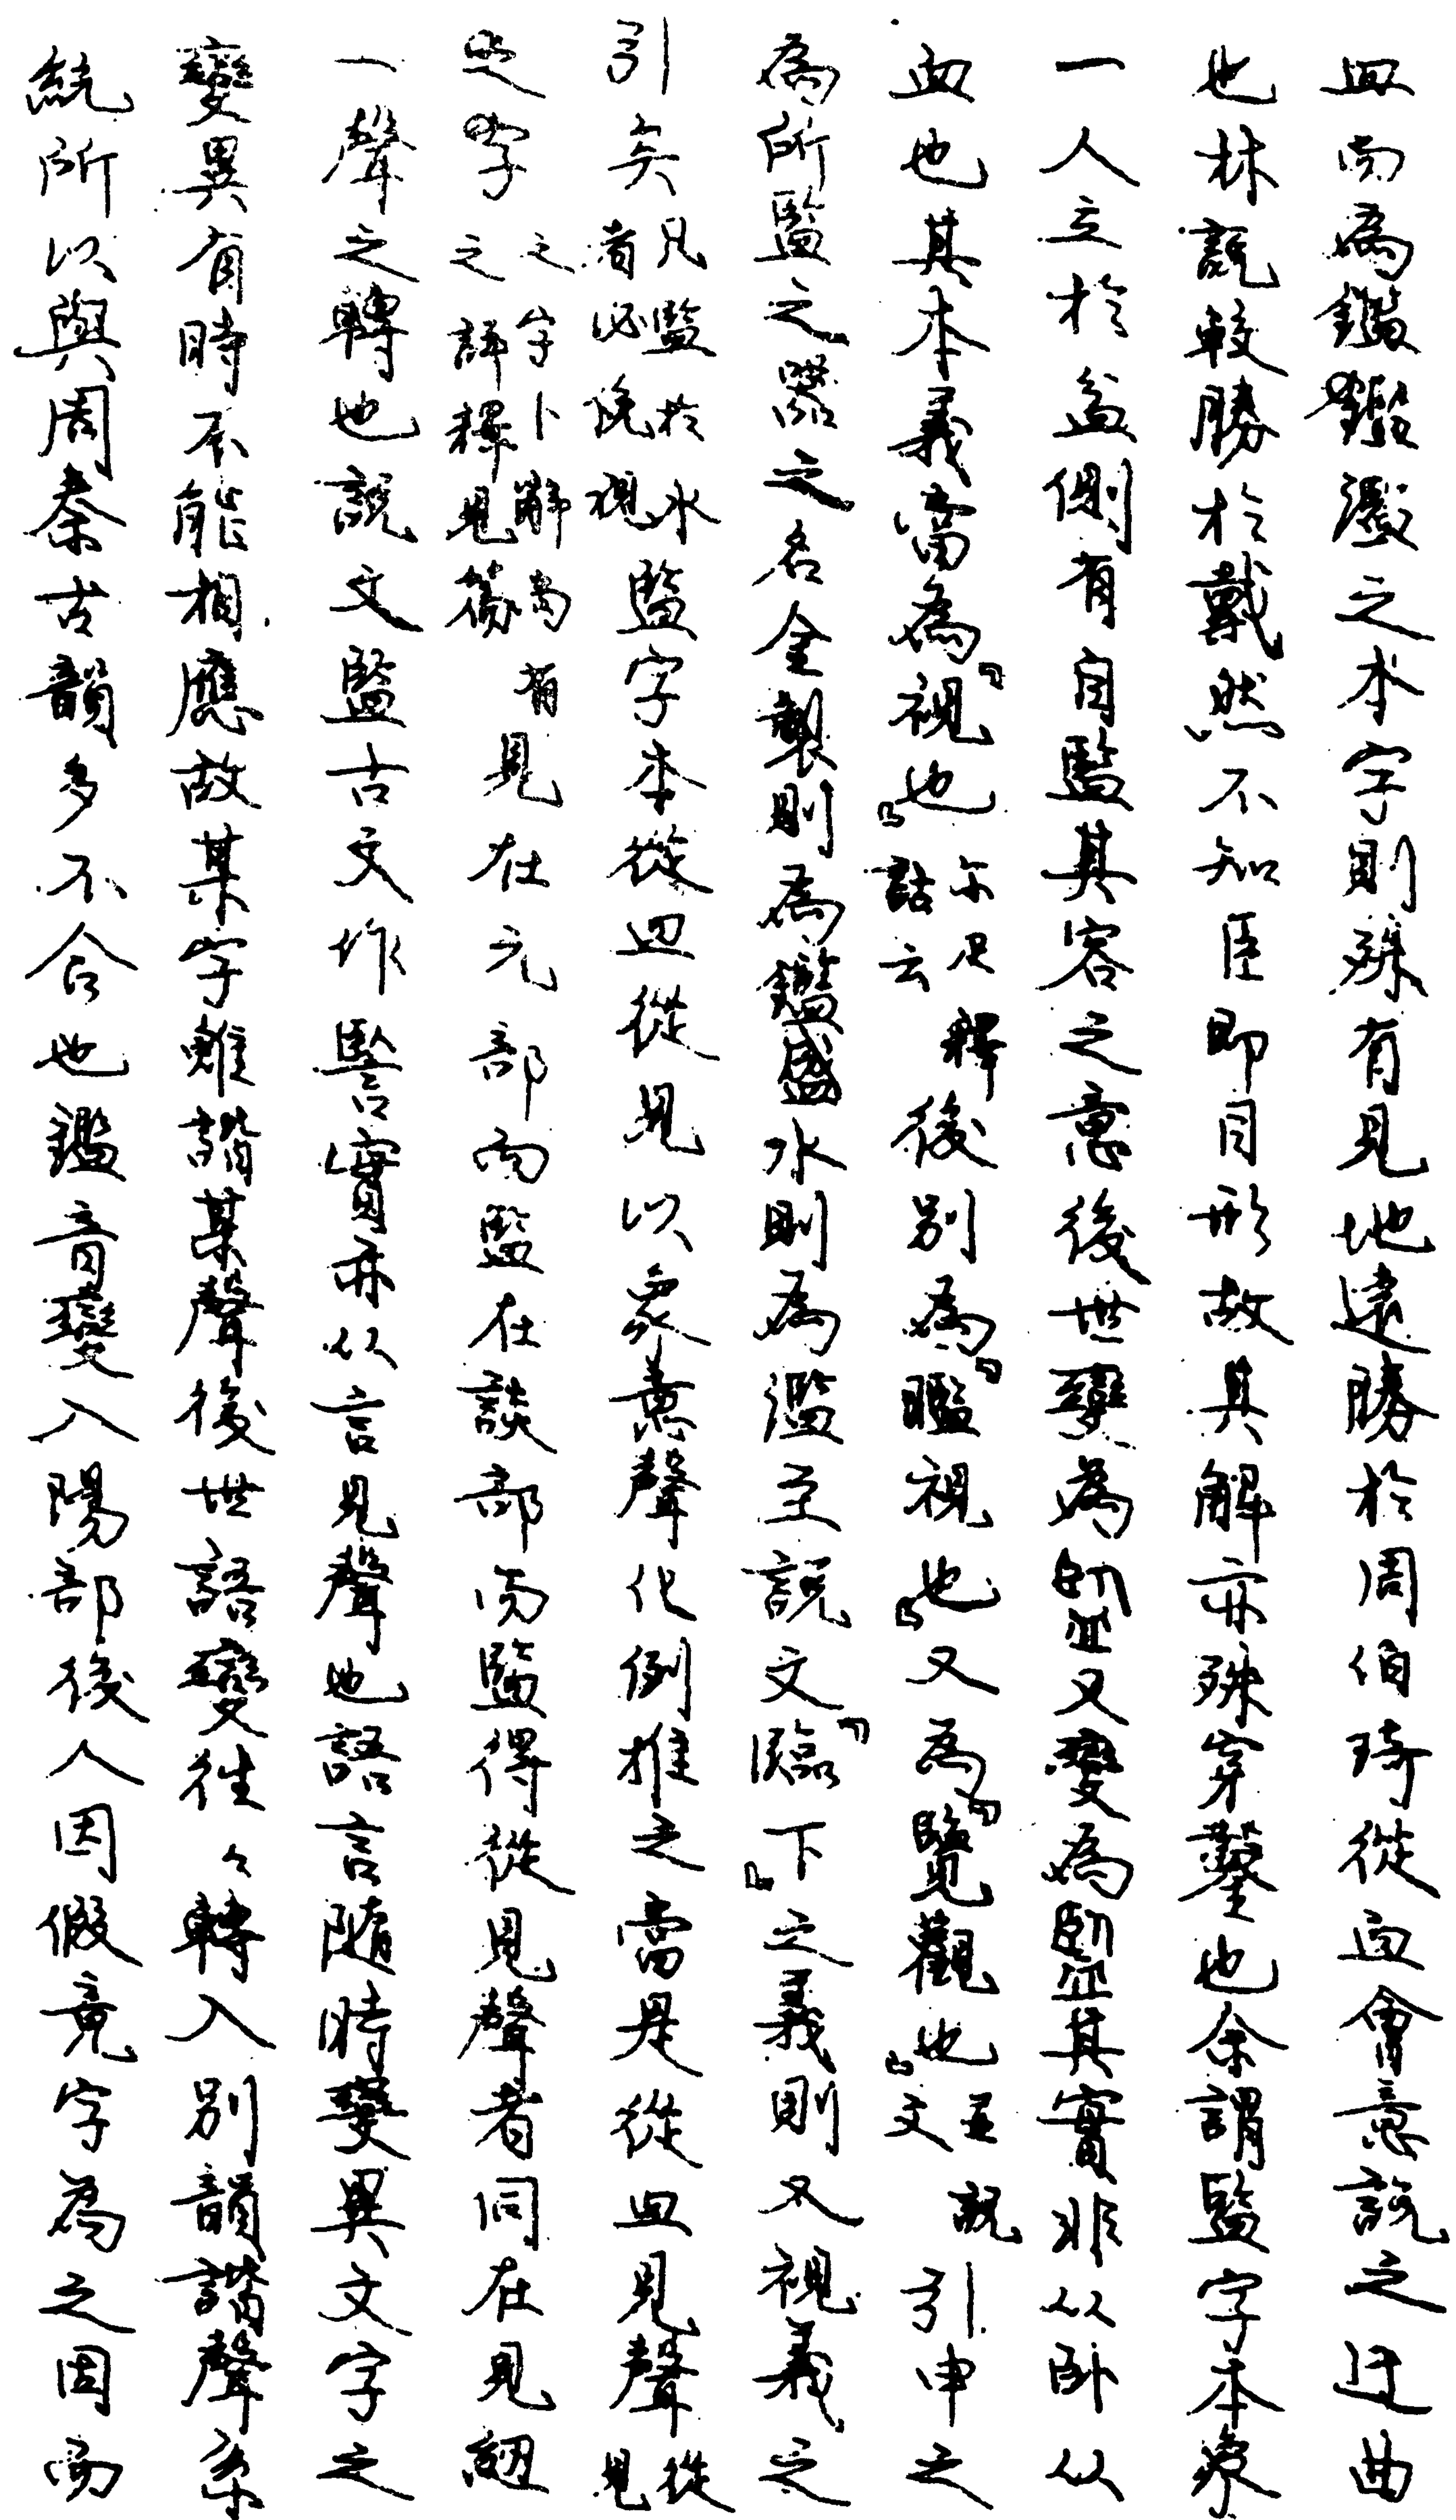 皿而為鑑鑑濫之本字則殊有見地遠勝於周伯琦從血會意說之迂曲
也林說較勝於戴然不知臣即目形故其解亦殊穿鑿也余謂監字本象
一人立於盆側有自監其容之意後世變為又變為其實非从臥从
血也其本義當為『視也』尔疋釋詁云後別為『瞷視也』又為『覽觀也』並說文引申之
為所監之器之名金製則為鑑盛水則為濫至說文『臨下』之義則又視義之
引矣凡監於水者必俛視監字本從皿從見以象意聲化例推之當是從皿見聲從見
之字之字卜辭尚有之詳釋見篇見在元部而監在談部而監得從見聲者同在見紐
一聲之轉也說文監古文作䜿實亦从言見聲也語言隨時變異文字之
變異有時不能相應故某字雖諧某聲後世語變往々轉入別韻諧聲系
統所以與周秦古韻多不合也鑑音變入陽部後人因假竟字為之因而